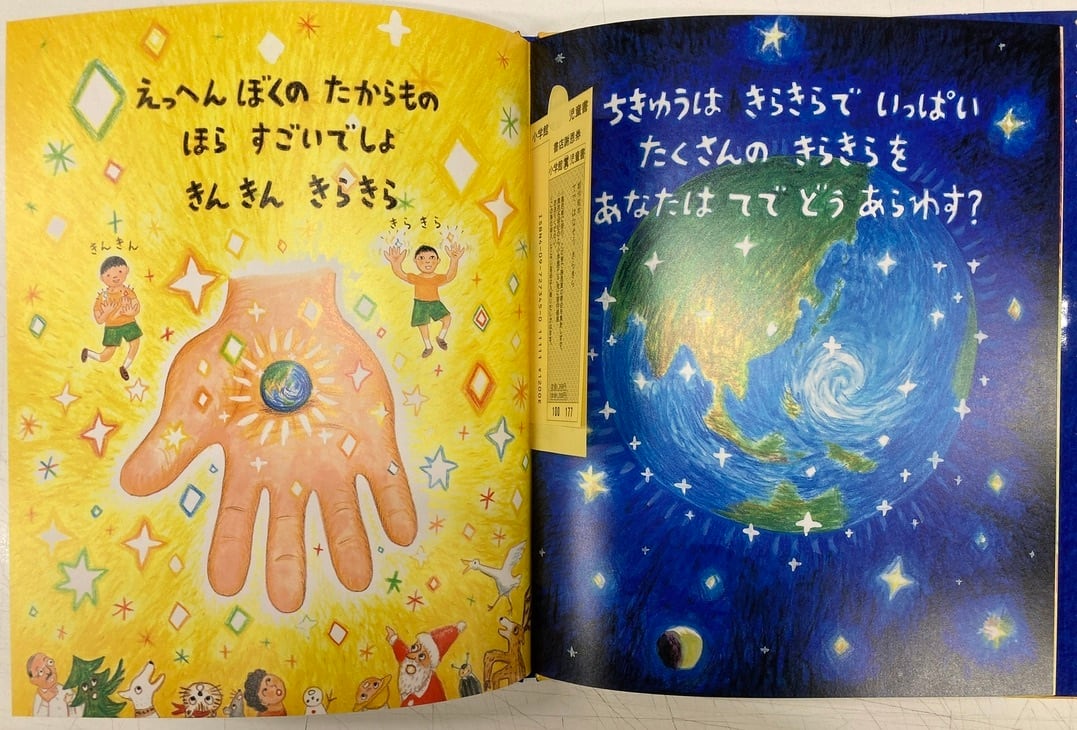 えっへん ぼくの たからもの
ほら すごいでしょ
きんきん きらきら
きんきん
きらきら
ちきゅうは きらきらで いっぱい
たくさんの きらきらを
あなたは てで どう あらわす?
小学館
児童書
書店謝恩券
小学館
児童書
ISBN4-09-727345-0
¥1200E
100 177